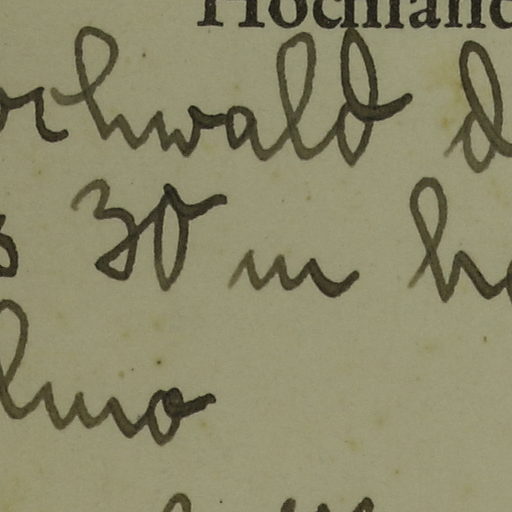 Hochland
ochwald d
s 30 m ho
lmo